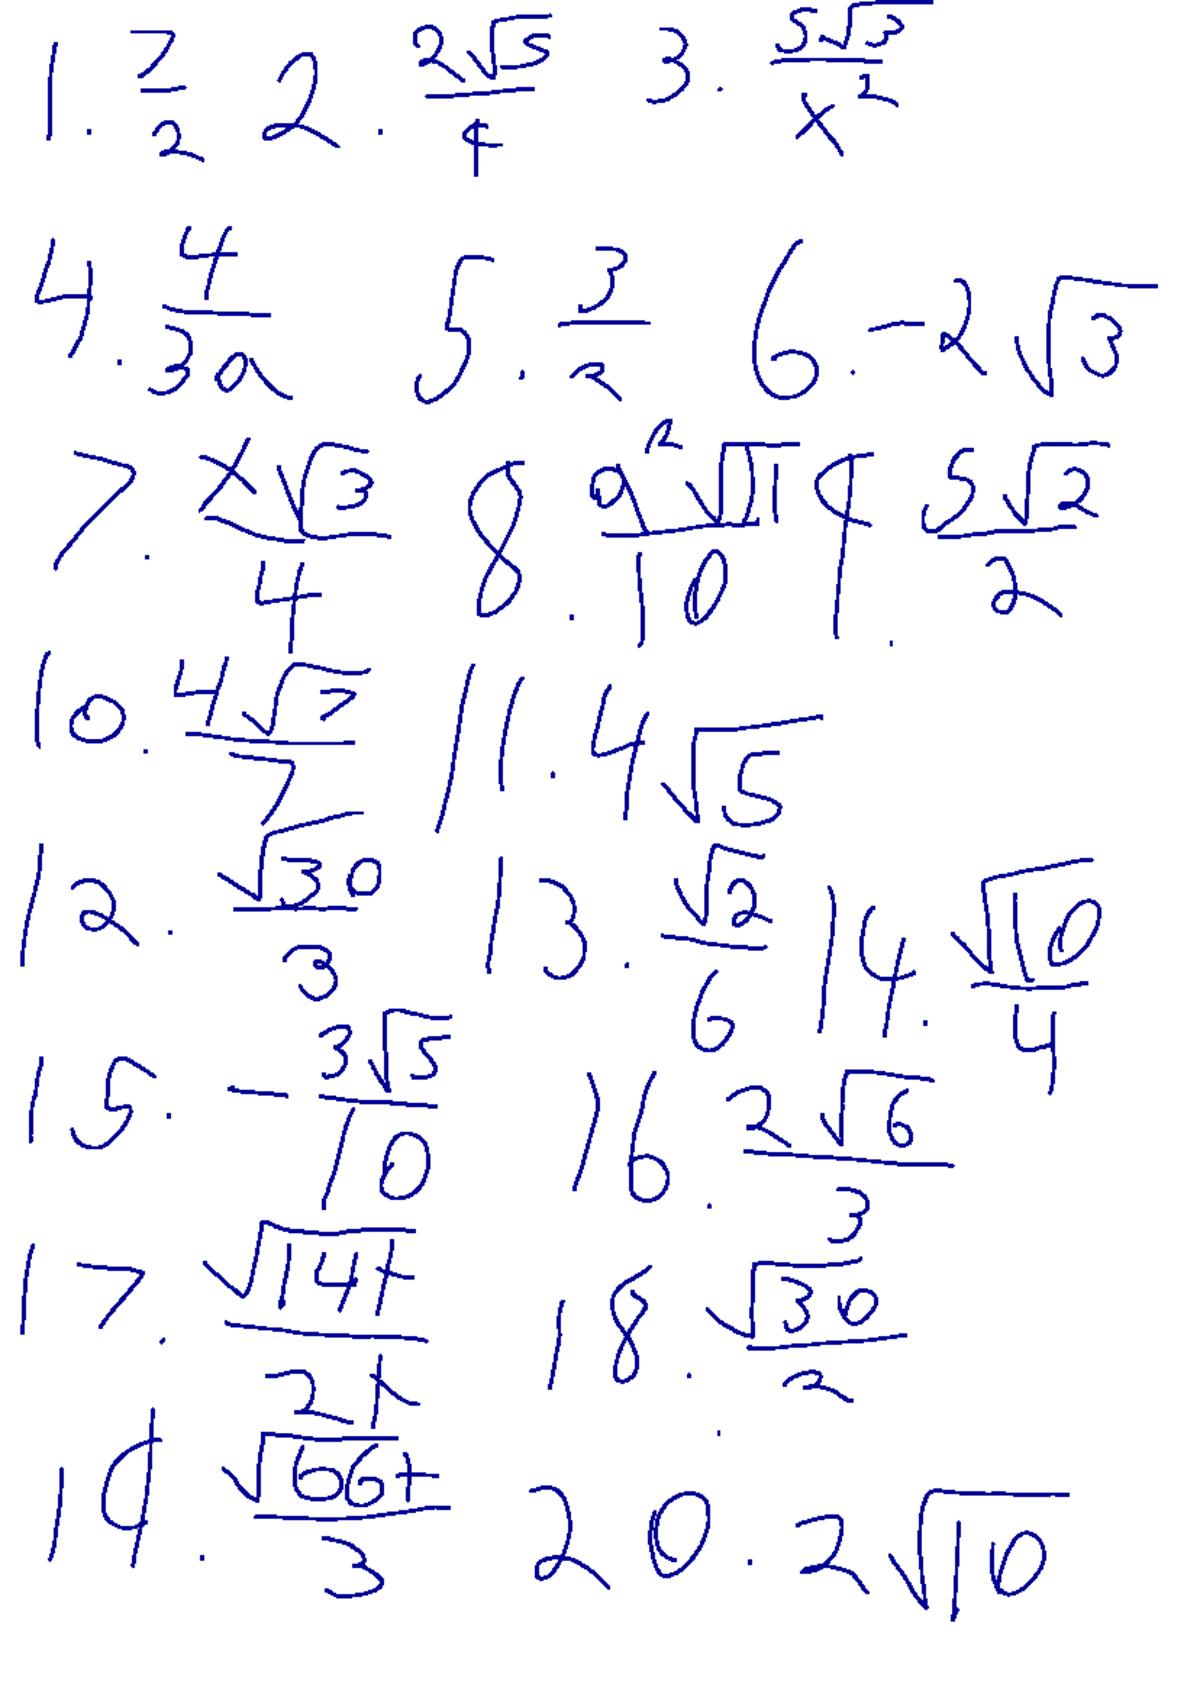 1. 7/2 2. 2√5/4 3. 5√3/x²
4. 4/3a 5. 3/2 6. -2√3
7. x√3/4 8. a²√11/10 9. 5√2/2
10. 4√7/7 11. 4√5
12. √30/3 13. √2/6 14. √10/4
15. -3√5/10 16. 2√6/3
17. √14t/2t 18. √30/2
19. √66t/3 20. 2√10